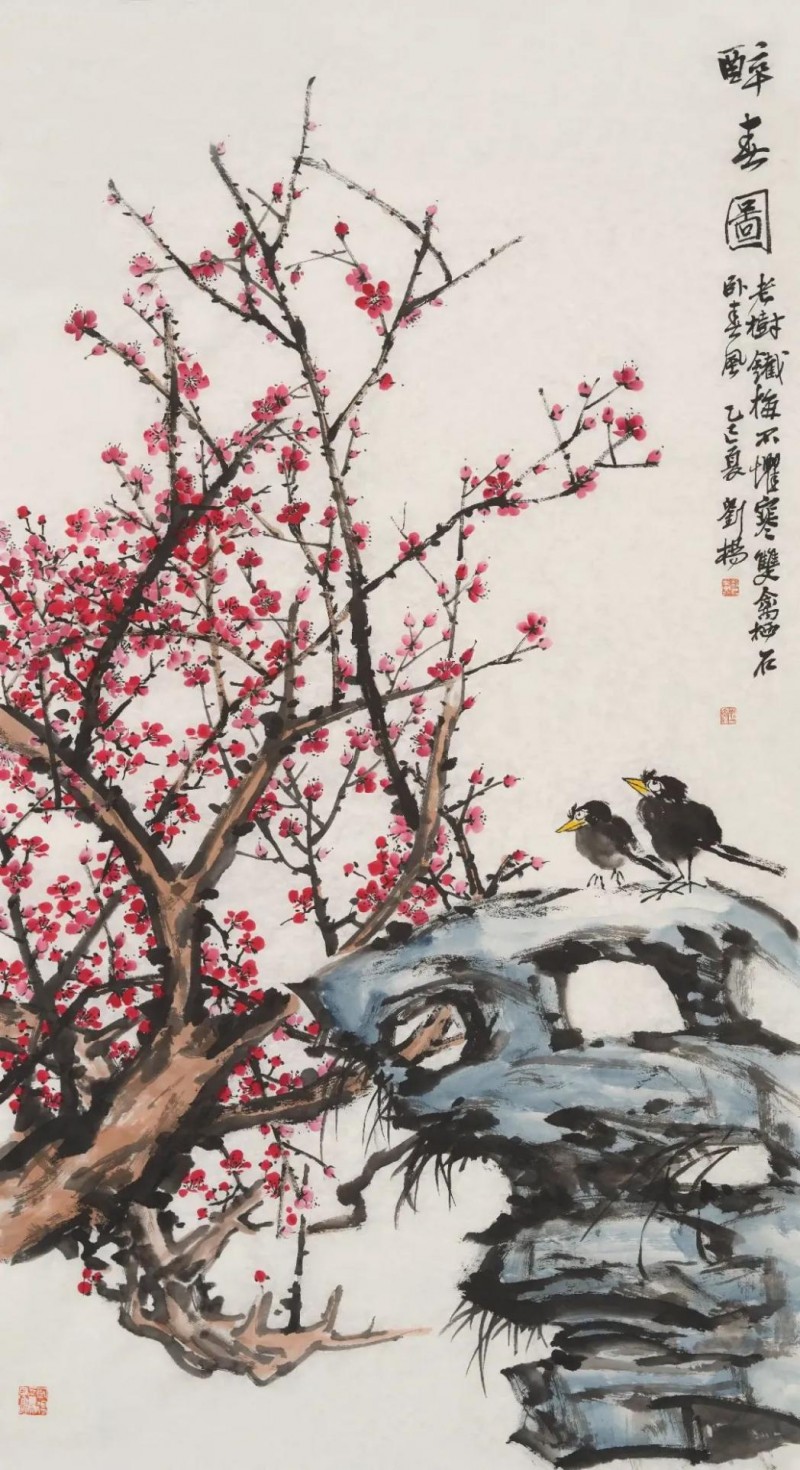 醉春圖
老樹鐵梅不懼寒雙禽栖石
卧春風 乙巳夏 劉揚